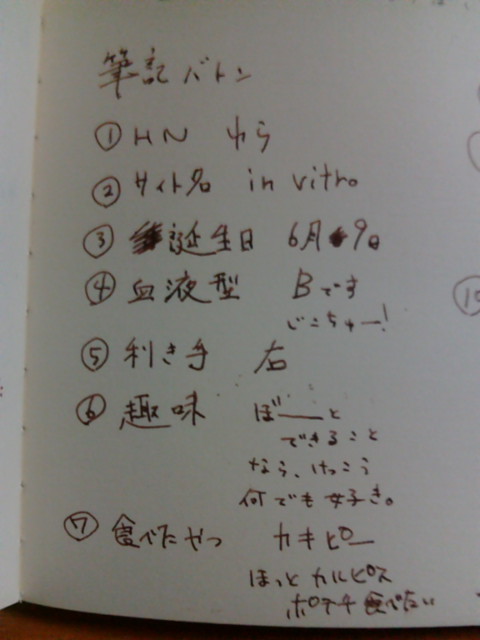 筆記バトン
① HN ゆら
② サイト名 in vitro
③ 誕生日 6月9日
④ 血液型 Bです
じこちゅー!
⑤ 利き手 右
⑥ 趣味 ぼーっと
できること
なら、けっこう
何でも好き。
⑦ 食べたやつ カキピー
ほっとカルピス
ポテチ食べたい